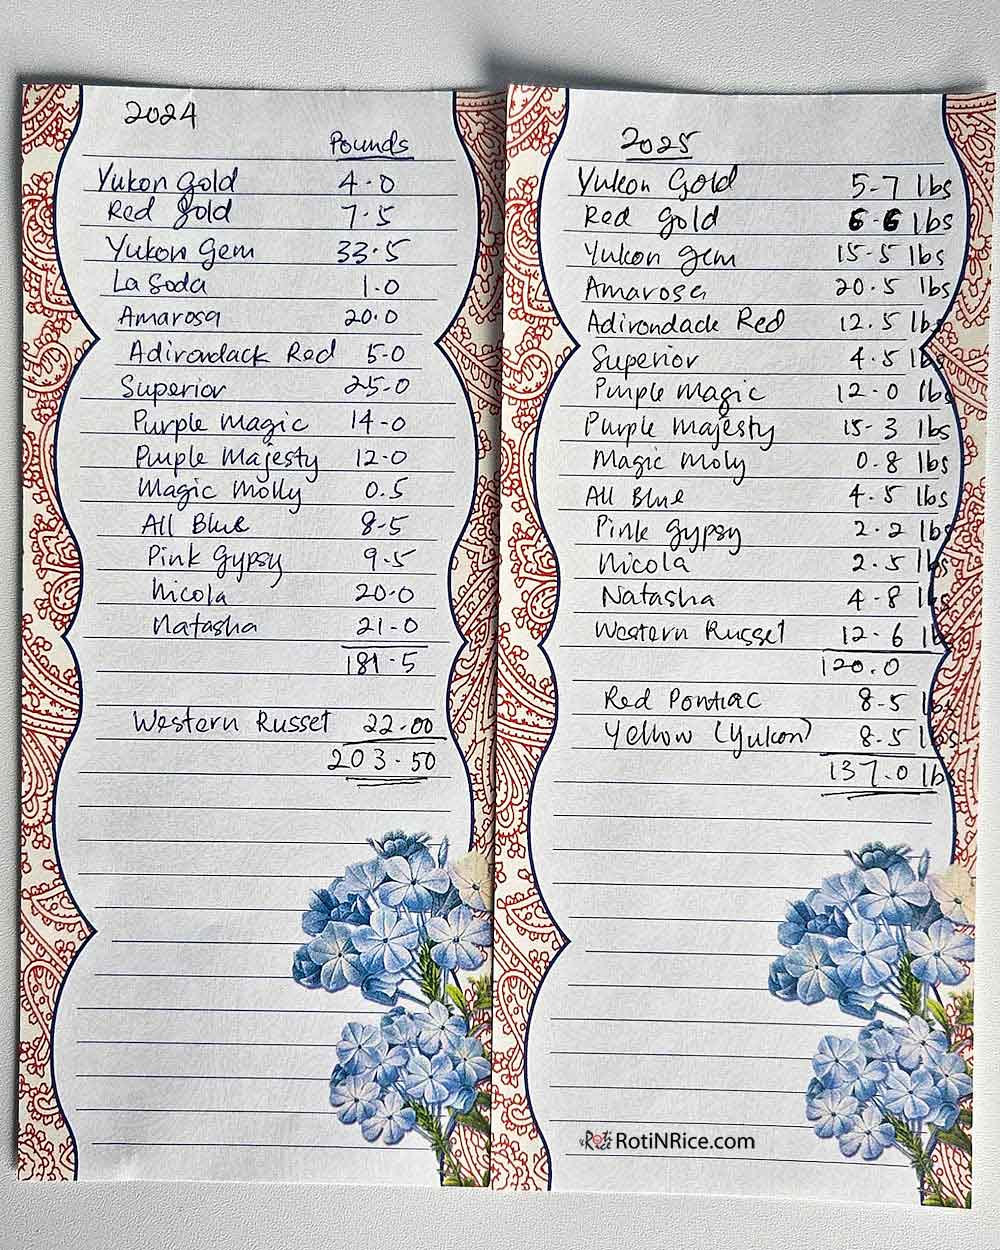 2024
Pounds
Yukon Gold 4.0
Red Gold 7.5
Yukon Gem 33.5
La Soda 1.0
Amarosa 20.0
Adirondack Red 5.0
Superior 25.0
Purple Magic 14.0
Purple Majesty 12.0
Magic Molly 0.5
All Blue 8.5
Pink Gypsy 9.5
Nicola 20.0
Natasha 21.0
181.5
Western Russet 22.00
203.50
2025
Yukon Gold 5.7 lbs
Red Gold 6.6 lbs
Yukon Gem 15.5 lbs
Amarosa 20.5 lbs
Adirondack Red 12.5 lbs
Superior 4.5 lbs
Purple Magic 12.0 lbs
Purple Majesty 15.3 lbs
Magic Moly 0.8 lbs
All Blue 4.5 lbs
Pink Gypsy 2.2 lbs
Nicola 2.5 lbs
Natasha 4.8 lbs
Western Russet 12.6 lbs
120.0
Red Pontiac 8.5 lbs
Yellow (Yukon) 8.5 lbs
137.0 lb
RotiNRice.com